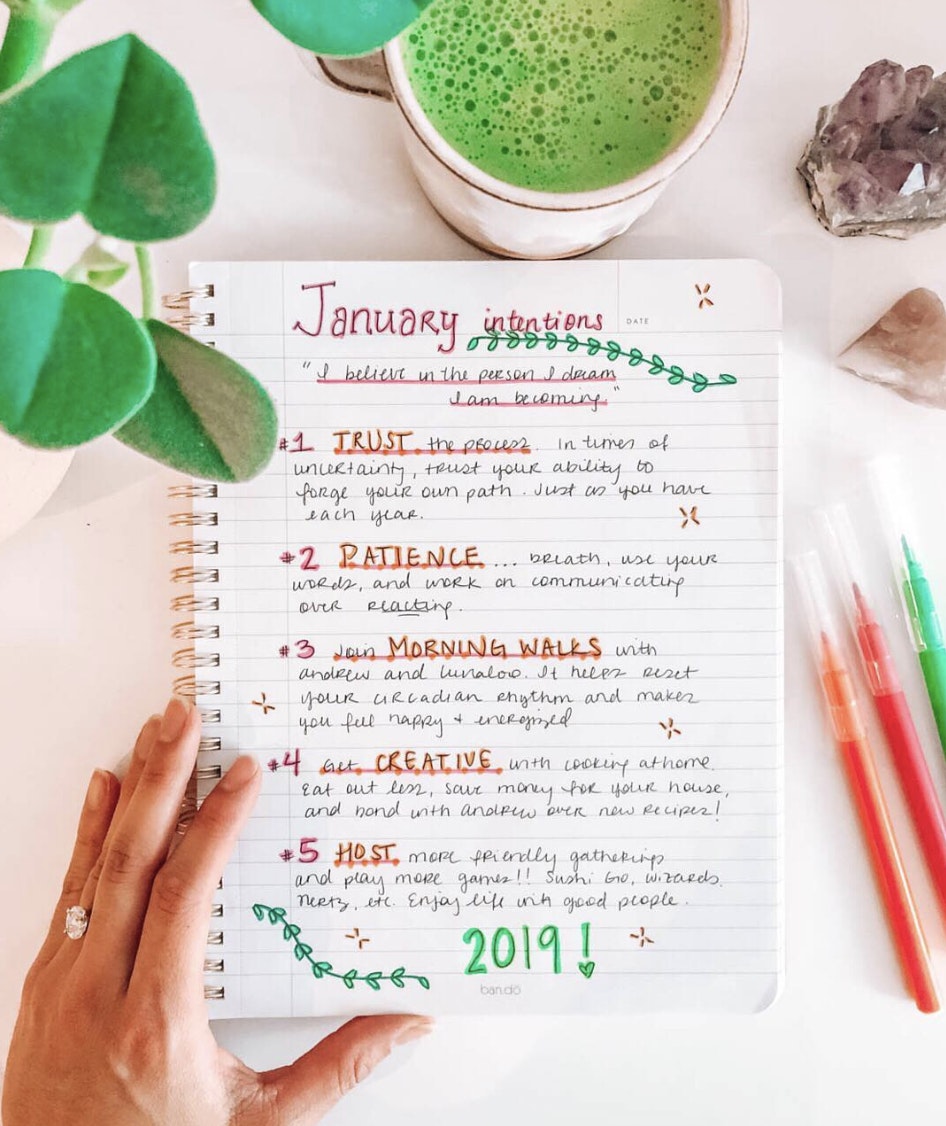 January intentions
DATE
"I believe in the person I dream
I am becoming."
#1 TRUST the process. In times of
uncertainty, trust your ability to
forge your own path. Just as you have
each year.
#2 PATIENCE ... breath, use your
words, and work on communicating
over reacting.
#3 Join MORNING WALKS with
andrew and lunaloo. It helps reset
your circadian rhythm and makes
you feel happy + energized
#4 Get CREATIVE with cooking at home.
Eat out less, save money for your house,
and bond with andrew over new recipes!
#5 HOST more friendly gatherings
and play more games!! Sushi Go, wizards,
Nertz, etc. Enjoy life with good people.
2019!
ban.dō